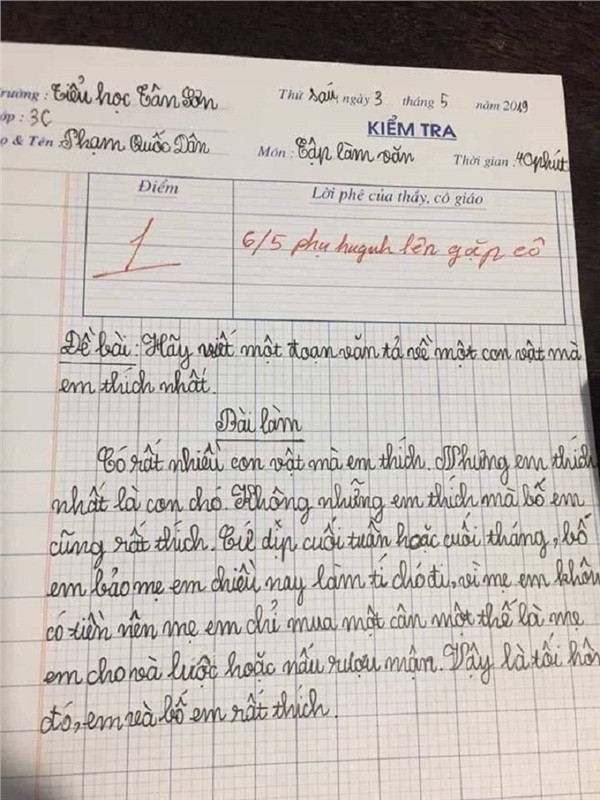 Trường : Tiểu học Tân Sơn
Thứ sáu, ngày 3 tháng 5 năm 2019
Lớp : 3C
KIỂM TRA
Họ & Tên : Phạm Quốc Dân
Môn : Tập làm văn
Thời gian : 40 phút
Điểm
Lời phê của thầy, cô giáo
1
6/5 phụ huynh lên gặp cô
Đề bài : Hãy viết một đoạn văn tả về một con vật mà
em thích nhất.
Bài làm
Có rất nhiều con vật mà em thích. Nhưng em thích
nhất là con chó. Không những em thích mà bố em
cũng rất thích. Cứ dịp cuối tuần hoặc cuối tháng, bố
em bảo mẹ em chiều nay làm tí chó đi, vì mẹ em khôn
có tiền nên mẹ em chỉ mua một cân một thế là mẹ
em cho và luộc hoặc nấu rượu mận. Vậy là tối hôm
đó, em và bố em rất thích.